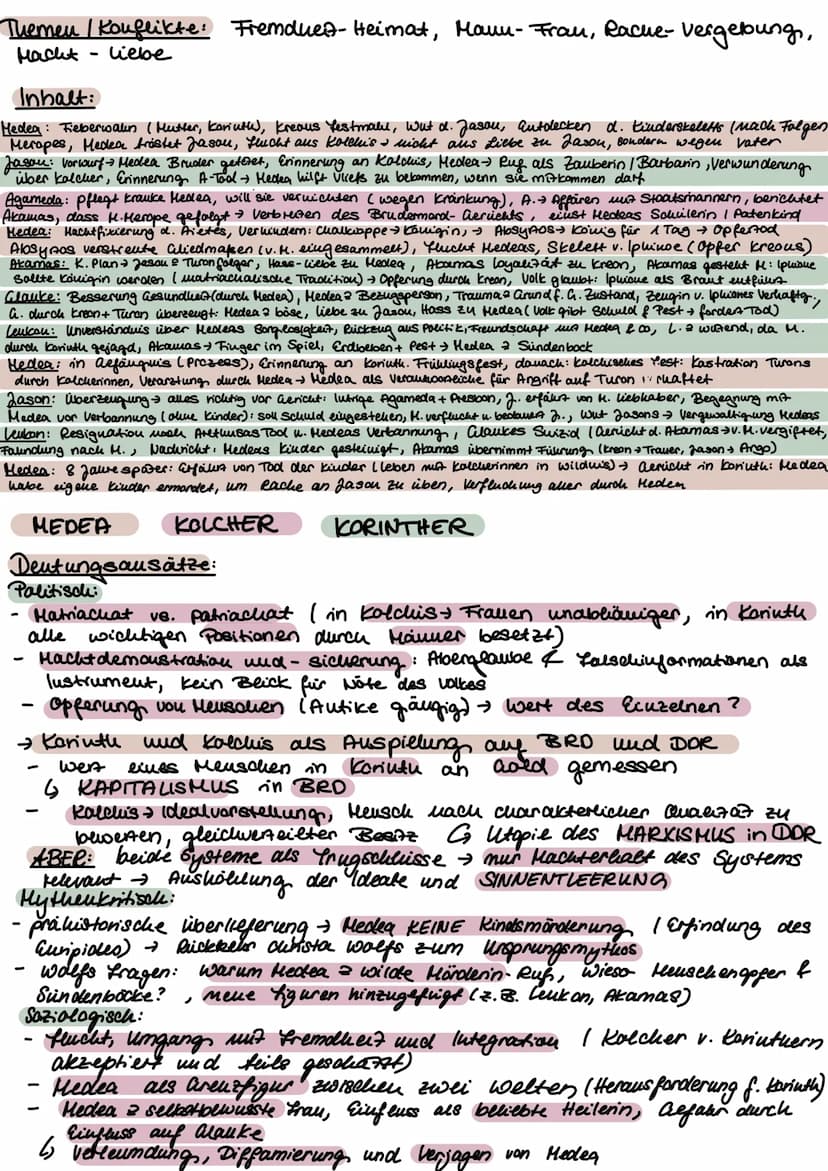 Themen / Konflikte: Fremdheit-Heimat, Mann-Frau, Rache-Vergebung,
Macht - Liebe
Inhalt:
Medea: Fieberwahn (Mutter, Korinth), Kreons Festmahl, Wut d. Jason, Entdecken d. Kinderskeletts (nach Folgen
Meropes, Medea tröstet Jason, Flucht aus Kolchis → nicht aus Liebe zu Jason, sondern wegen Vater
Jason: Vorwurf → Medea Bruder getötet, Erinnerung an Kolchis, Medea → Ruf als Zauberin / Barbarin, Verwunderung
über Kolcher, Erinnerung A-Tod → Medea hilft Vlies zu bekommen, wenn sie mitkommen darf
Agameda: pflegt kranke Medea, will sie vernichten (wegen Kränkung), A. → Affären mit Staatsmännern, berichtet
Akamas, dass M. Merope gefolgt → Verbreiten des Brudermord-Gerüchts, einst Medeas Schülerin / Patenkind
Medea: Machtfixierung d. Aietes, Verhindern: Chalkiope → Königin, → Absyrtos → König für 1 Tag → Opfertod
Absyrtos verstreute Gliedmaßen (v. M. eingesammelt), Flucht Medeas, Skelett v. Iphinoe (Opfer Kreons)
Akamas: K. Plan → Jason = Thronfolger, Hass-Liebe zu Medea, Akamas Loyalität zu Kreon, Akamas gesteht M: Iphinoe
sollte Königin werden (matriachalische Tradition) → Opferung durch Kreon, Volk glaubt: Iphinoe als Braut entführt
Glauke: Besserung Gesundheit (durch Medea), Medea = Bezugsperson, Trauma = Grund f. G. Zustand, Zeugin v. Iphinoes Verhaftg.,
G. durch Kreon + Turon überzeugt: Medea = böse, Liebe zu Jason, Hass zu Medea (Volk gibt Schuld f. Pest → fordert Tod)
Leukon: Unverständnis über Medeas Sorglosigkeit, Rückzug aus Politik, Freundschaft mit Medea & co, L. = wütend, da M.
durch Korinth gejagd, Akamas → Finger im Spiel, Erdbeben + Pest → Medea = Sündenbock
Medea: in Gefängnis (Prozess), Erinnerung an Korinth. Frühlingsfest, danach: kolchisches Fest: Kastration Turons
durch Kolcherinnen, Verarztung durch Medea → Medea als Verantwortliche für Angriff auf Turon verhaftet
Jason: Überzeugung → alles richtig vor Gericht: Intrige Agameda + Presbon, J. erfährt von M. Liebhaber, Begegnung mit
Medea vor Verbannung (ohne Kinder): soll Schuld eingestehen, M. verflucht u. bedauert J., Wut Jasons → Vergewaltigung Medeas
Leukon: Resignation nach Arethusas Tod u. Medeas Verbannung, Glaukes Suizid (Gerücht d. Akamas → v. M. vergiftet,
Fahndung nach M., Nachricht: Medeas Kinder gesteinigt, Akamas übernimmt Führung (Kreon → Trauer, Jason → Argo)
Medea: 8 Jahre später: Erfährt von Tod der Kinder (leben mit Kolcherinnen in Wildnis) → Gerücht in Korinth: Medea
habe eigene Kinder ermordet, um Rache an Jason zu üben, Verfluchung aller durch Medea
MEDEA KOLCHER KORINTHER
Deutungsansätze:
Politisch:
- Matriachat vs. Patriachat (in Kolchis → Frauen unabhängiger, in Korinth
alle wichtigen Positionen durch Männer besetzt)
- Machtdemonstration und -sicherung: Aberglaube & Falschinformationen als
Instrument, kein Blick für Nöte des Volkes
- Opferung von Menschen (Antike gängig) → Wert des Einzelnen?
→ Korinth und Kolchis als Anspielung auf BRD und DDR
- Wert eines Menschen in Korinth an Gold gemessen
↳ KAPITALISMUS in BRD
- Kolchis → Idealvorstellung, Mensch nach charakterlicher Qualität zu
bewerten, gleichverteilter Besitz ↳ Utopie des MARXISMUS in DDR
ABER: beide Systeme als Trugschlüsse → nur Machterhalt des Systems
relevant → Aushöhlung der Ideale und SINNENTLEERUNG
Mythenkritisch:
- prähistorische Überlieferung → Medea KEINE Kindsmörderung (Erfindung des
Euripides) → Rückkehr Christa Wolfs zum Ursprungsmythos
- Wolfs Fragen: Warum Medea = wilde Mörderin-Ruf, Wieso Menschenopfer &
Sündenböcke?, neue Figuren hinzugefügt (z.B. Leukon, Akamas)
Soziologisch:
- Flucht, Umgang mit Fremdheit und Integration (Kolcher v. Korinthern
akzeptiert und teils geschätzt)
- Medea als Grenzfigur zwischen zwei Welten (Herausforderung f. Korinth)
- Medea = selbstbewusste Frau, Einfluss als beliebte Heilerin, Gefahr durch
Einfluss auf Glauke
↳ Verleumdung, Diffamierung und Verjagen von Medea